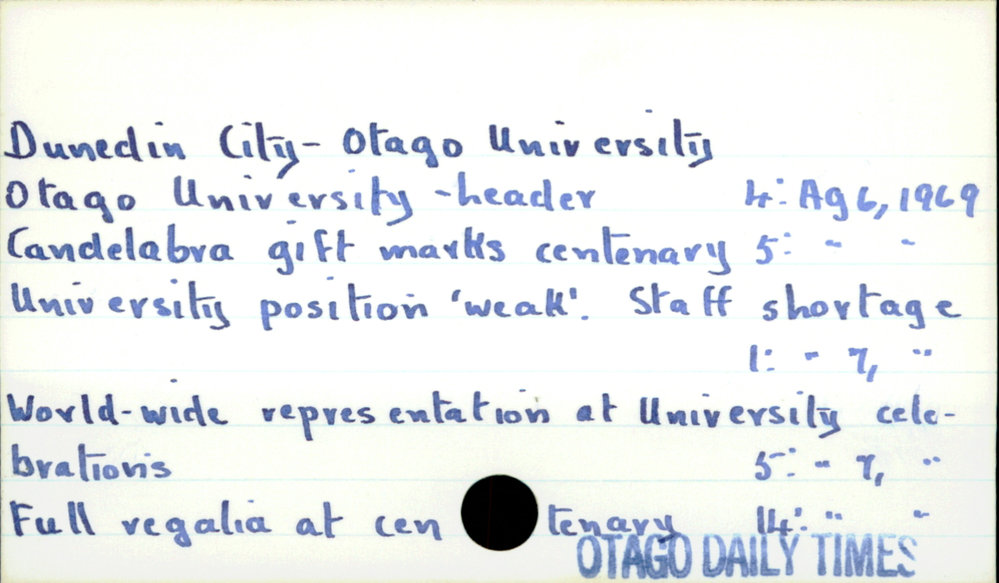 Dunedin City- Otago University
Otago University -header 4: Ag 6, 1969
Candelabra gift marks centenary 5: " "
University position 'weak'. Staff shortage
1: " 7, "
World-wide representation at University cele-
brations 5: " 7, "
Full regalia at cen tenary 14: " "
OTAGO DAILY TIMES